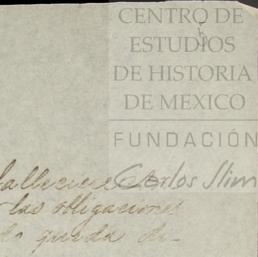 CENTRO DE
ESTUDIOS
DE HISTORIA
DE MEXICO
FUNDACIÓN
Carlos Slim
las obligaciones
queda